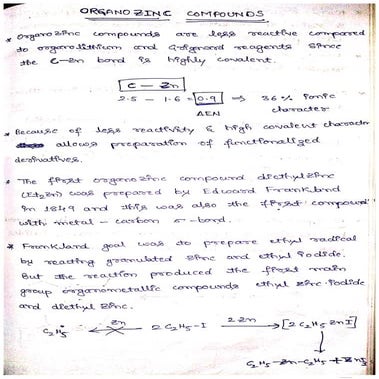 ORGANOZINC COMPOUNDS
* Organozinc compounds are less reactive compared
to organolithium and Grignard reagents since
the C-Zn bond is highly covalent.
C - Zn
2.5 - 1.6 = 0.9 ⇒ 36% ionic
ΔEN character
* Because of less reactivity & high covalent character
allows preparation of functionalized
derivatives.
* The first organozinc compound diethylzinc
(Et₂Zn) was prepared by Edward Frankland
in 1849 and this was also the first compound
with metal - carbon σ-bond.
* Frankland goal was to prepare ethyl radical
by reacting granulated zinc and ethyl iodide.
But the reaction produced the first main
group organometallic compounds ethyl zinc iodide
and diethyl zinc.
C₂H₅• Zn 2 C₂H₅-I 2Zn → [2 C₂H₅ZnI]
↓
C₂H₅-Zn-C₂H₅ + ZnI₂